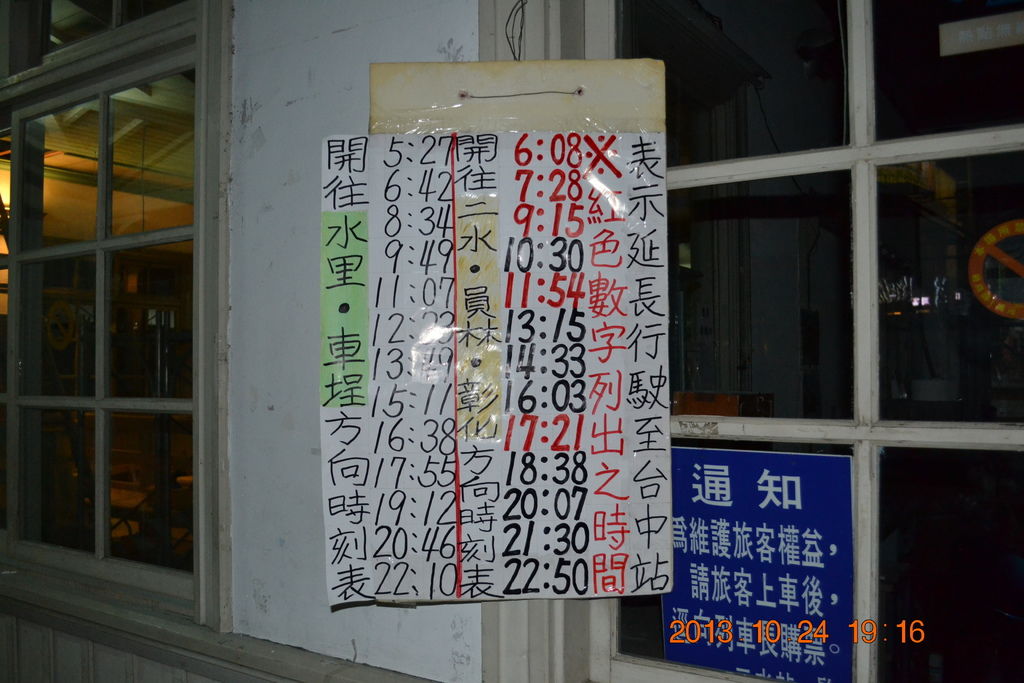 開往水里·車埕方向時刻表
5:27
6:42
8:34
9:49
11:07
12:23
13:49
15:11
16:38
17:55
19:12
20:46
22:10
開往二水·員林·彰化方向時刻表
6:08
7:28
9:15
10:30
11:54
13:15
14:33
16:03
17:21
18:38
20:07
21:30
22:50
※紅色數字列出之時間
表示延長行駛至台中站
通知
為維護旅客權益，
請旅客上車後，
逕向列車長購票。
2013 10 24 19:16